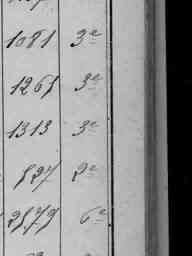 1081 3e
1261 3e
1313 3e
827 2e
2179 6e